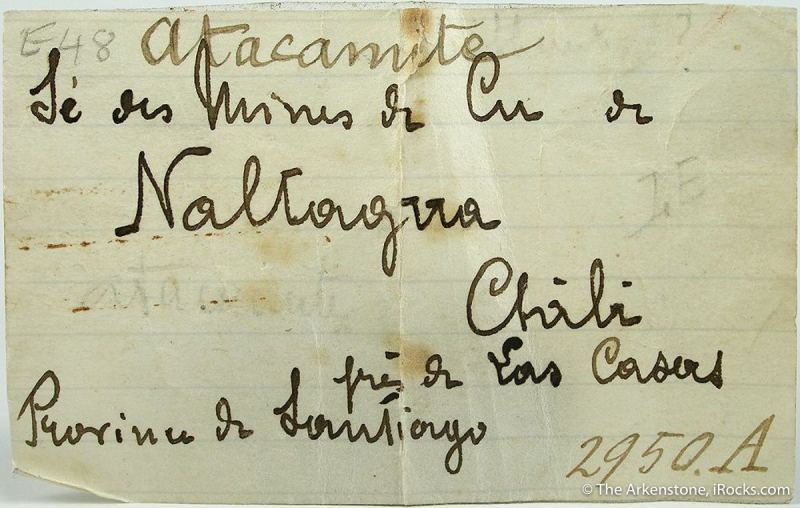 E48 Atacamite
Sé des Mines de Cu de
Naltagua
IE
Atacamite
Chili
prè de Las Casas
Province de Santiago
2950.A
© The Arkenstone, iRocks.com